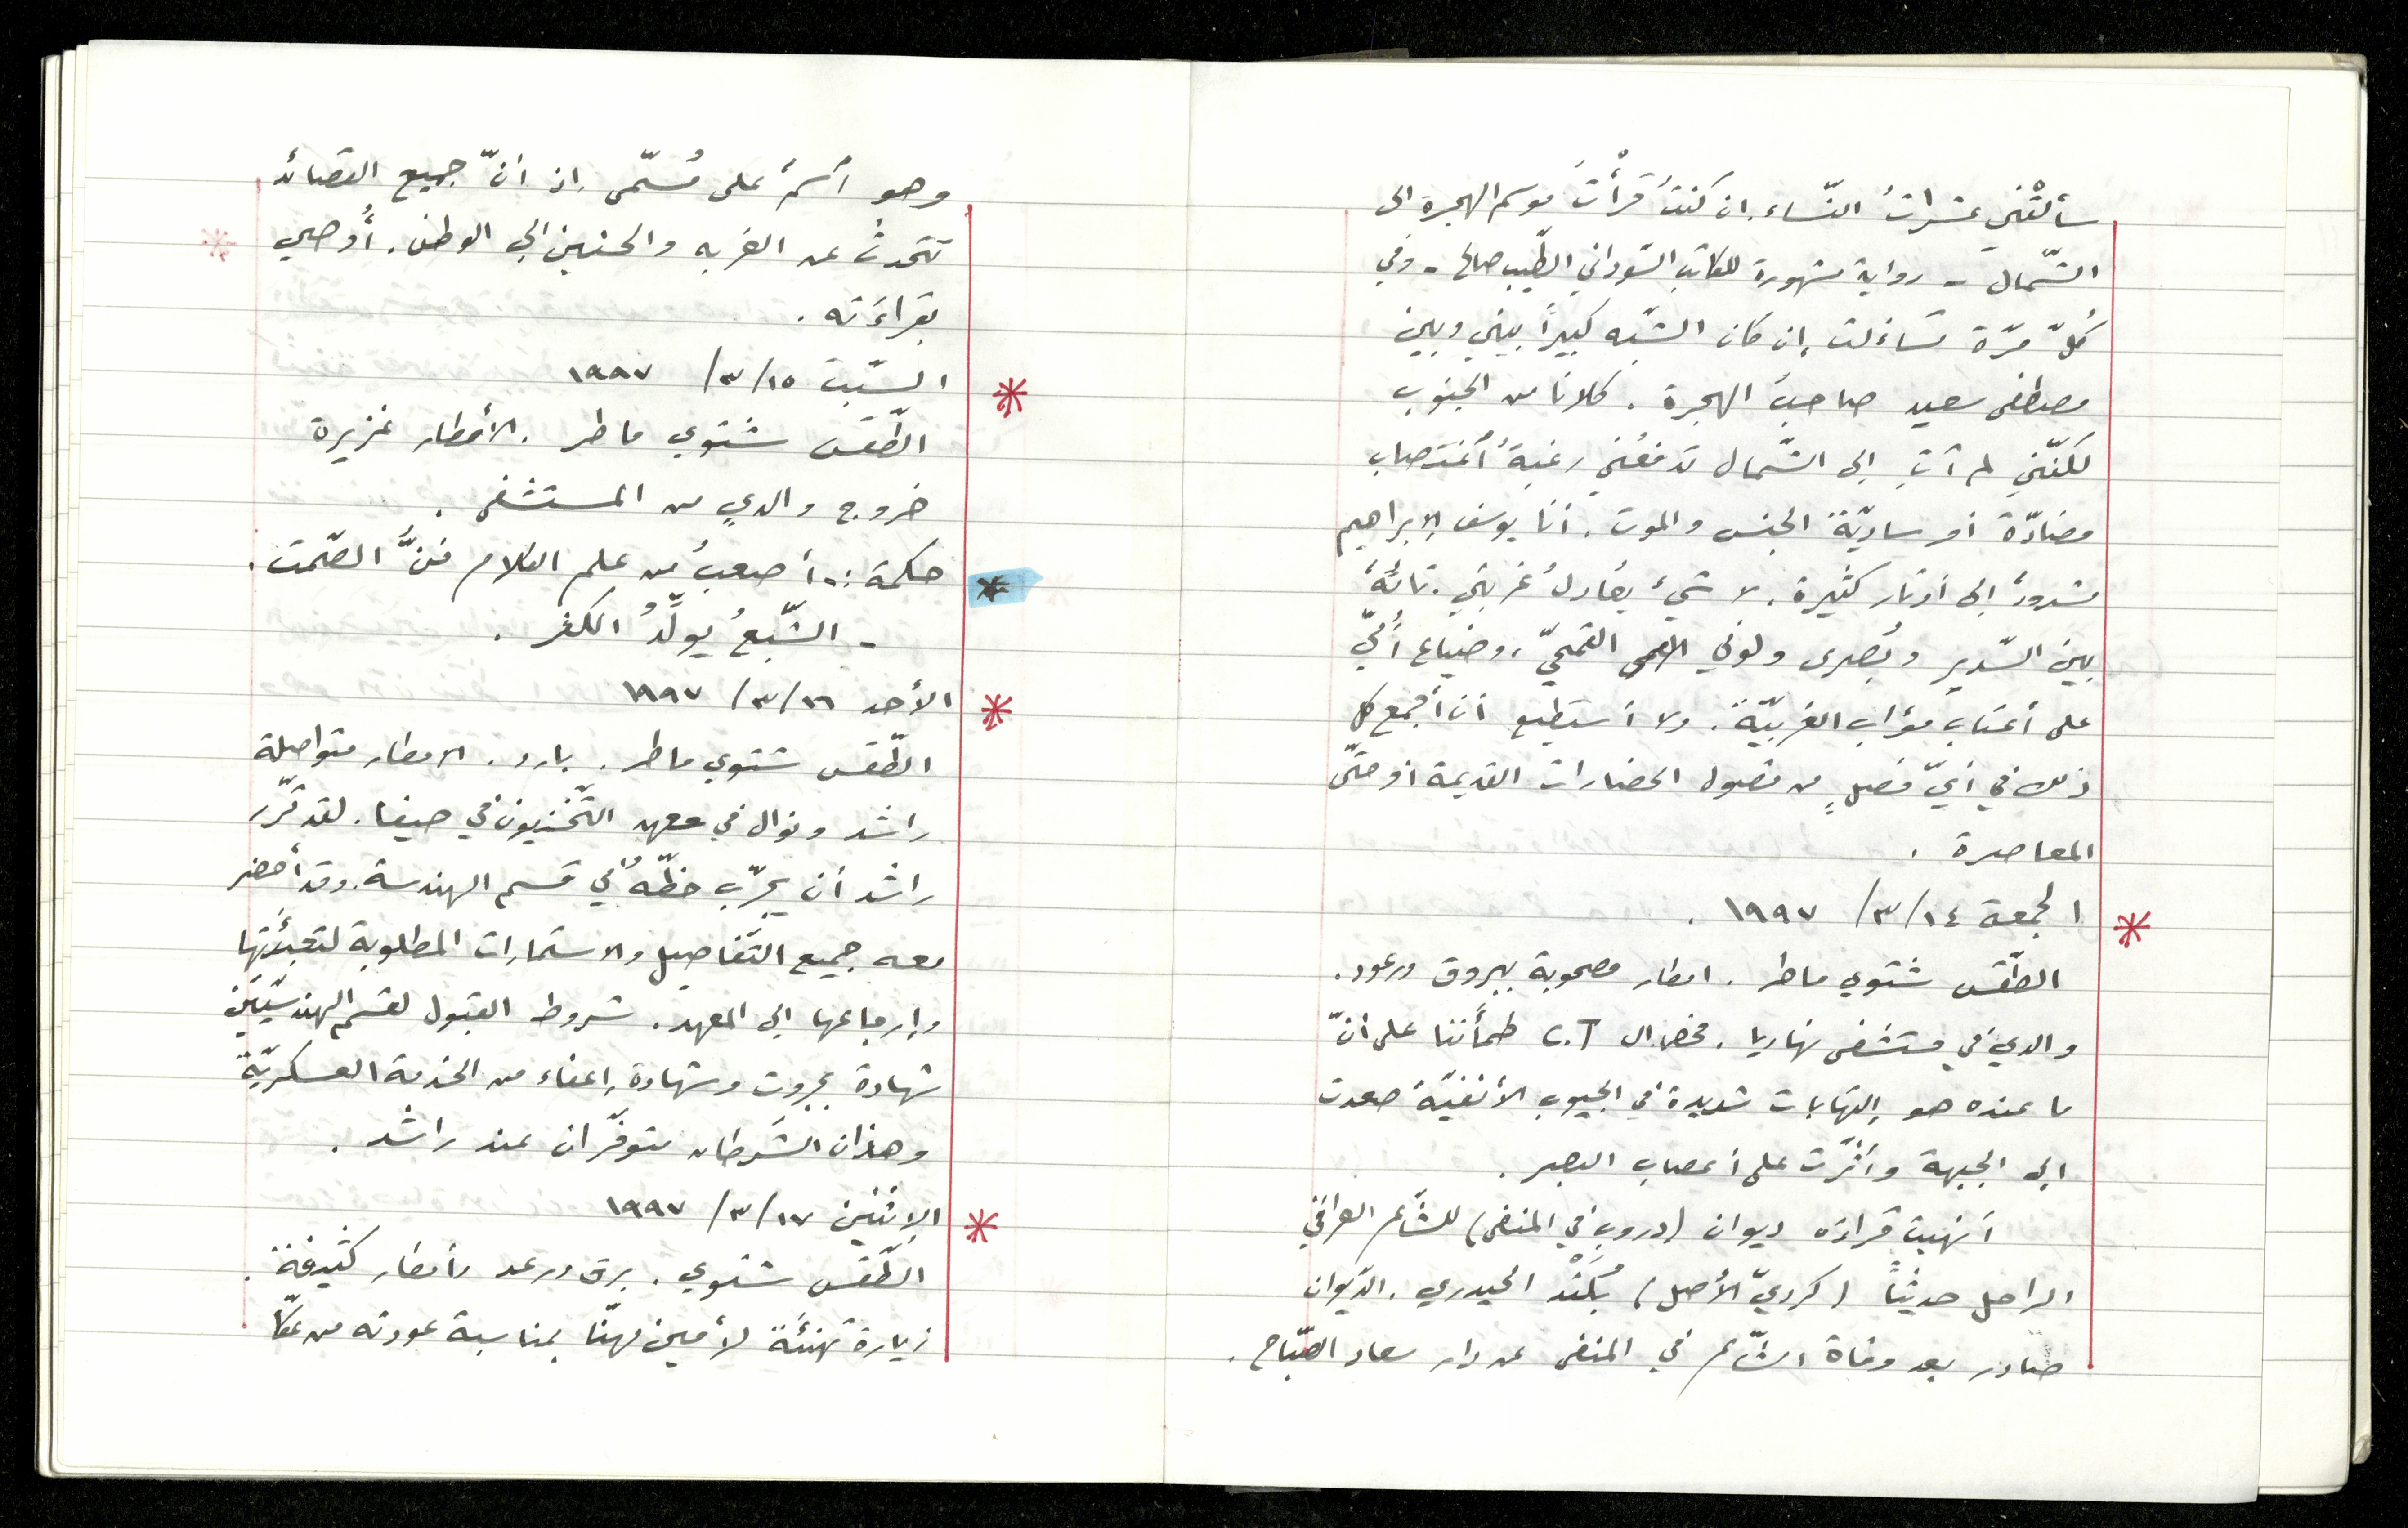 سألتْني عشراتُ النّساء إن كنتُ قرأْتُ موسم الهجرة الى
الشّمال - رواية مشهورة للكاتب السّوداني الطّيب صالح - وفي
كلّ مرّة تساءلت إن كان الشّبه كبيراً بيني وبين
مصطفى سعيد صاحب الهجرة . كلانا من الجنوب
لكنّني لم آتِ الى الشّمال تدفعُني رغبةُ اغتصاب
مضادّة أو ساديّة الجنس والموت . أنا يوسف الإبراهيم
مشدودٌ إلى أوتار كثيرة . لا شيءَ يعادلُ غربتي . تائهٌ
بين السّدير وبُصرى ولوني القمحيّ ، وضياع أمّي
على أعتاب مؤاب الغربيّة . ولا أستطيع أن أجمع كل
ذلك في أيّ فصلٍ من فصول الحضارات القديمة أو حتّى
المعاصرة .
* الجمعة ١٤/٣/ ١٩٩٧ .
الطّقس شتوي ماطر . امطار مصحوبة ببروق ورعود .
والدي في مستشفى نهاريا . فحص ال C.T طمأَننا على أنّ
ما عنده هو إلتهابات شديدة في الجيوب الأنفيّة صعدت
الى الجبهة وأثّرت على أعصاب البصر .
أنهيت قراءة ديوان (دروب في المنفى) للشّاعر العراقي
الراحل حديثاً (كرديّ الأصل) بُلَنْد الحيدري . الدّيوان
صادر بعد وفاة الشّاعر في المنفى عن دار سعاد الصّباح .
وهو اسمٌ على مُسمّى إذ أنّ جميع القصائد
تتحدث عن الغربه والحنين إلى الوطن . أُوصي
بقراءَته .
* السّبت ١٥/٣/ ١٩٩٧
الطّقس شتوي ماطر . الأمطار غزيرة
خروج والدي من المستشفى .
* حكمة :- أصعبُ من علم الكلام فنُّ الصّمت .
- الشّبعُ يولّدُ الكفر .
* الأحد ١٦/٣/ ١٩٩٧
الطّقس شتوي ماطر . بارد . الامطار متواصلة
راشد ونوال في معهد التّخنيون في حيفا . لقد قرّر
راشد أن يجرّب حظّهُ في قسم الهندسة . وقد أحضر
معه جميع التّفاصيل والاستمارات المطلوبة لتعبئَتها
وإرجاعها إلى المعهد . شروط القبول لقسم الهندسيّين
شهادة بجروت وشهادة إعفاء من الخدمة العسكريّة
وهذان الشّرطان متوفّران عند راشد .
* الإثنين ١٧/٣/ ١٩٩٧
الطّقس شتوي . برق ورعد وأمطار كثيفة .
زيارة تهنئَة لأمين مهنّا بمناسبة عودته من عكّا